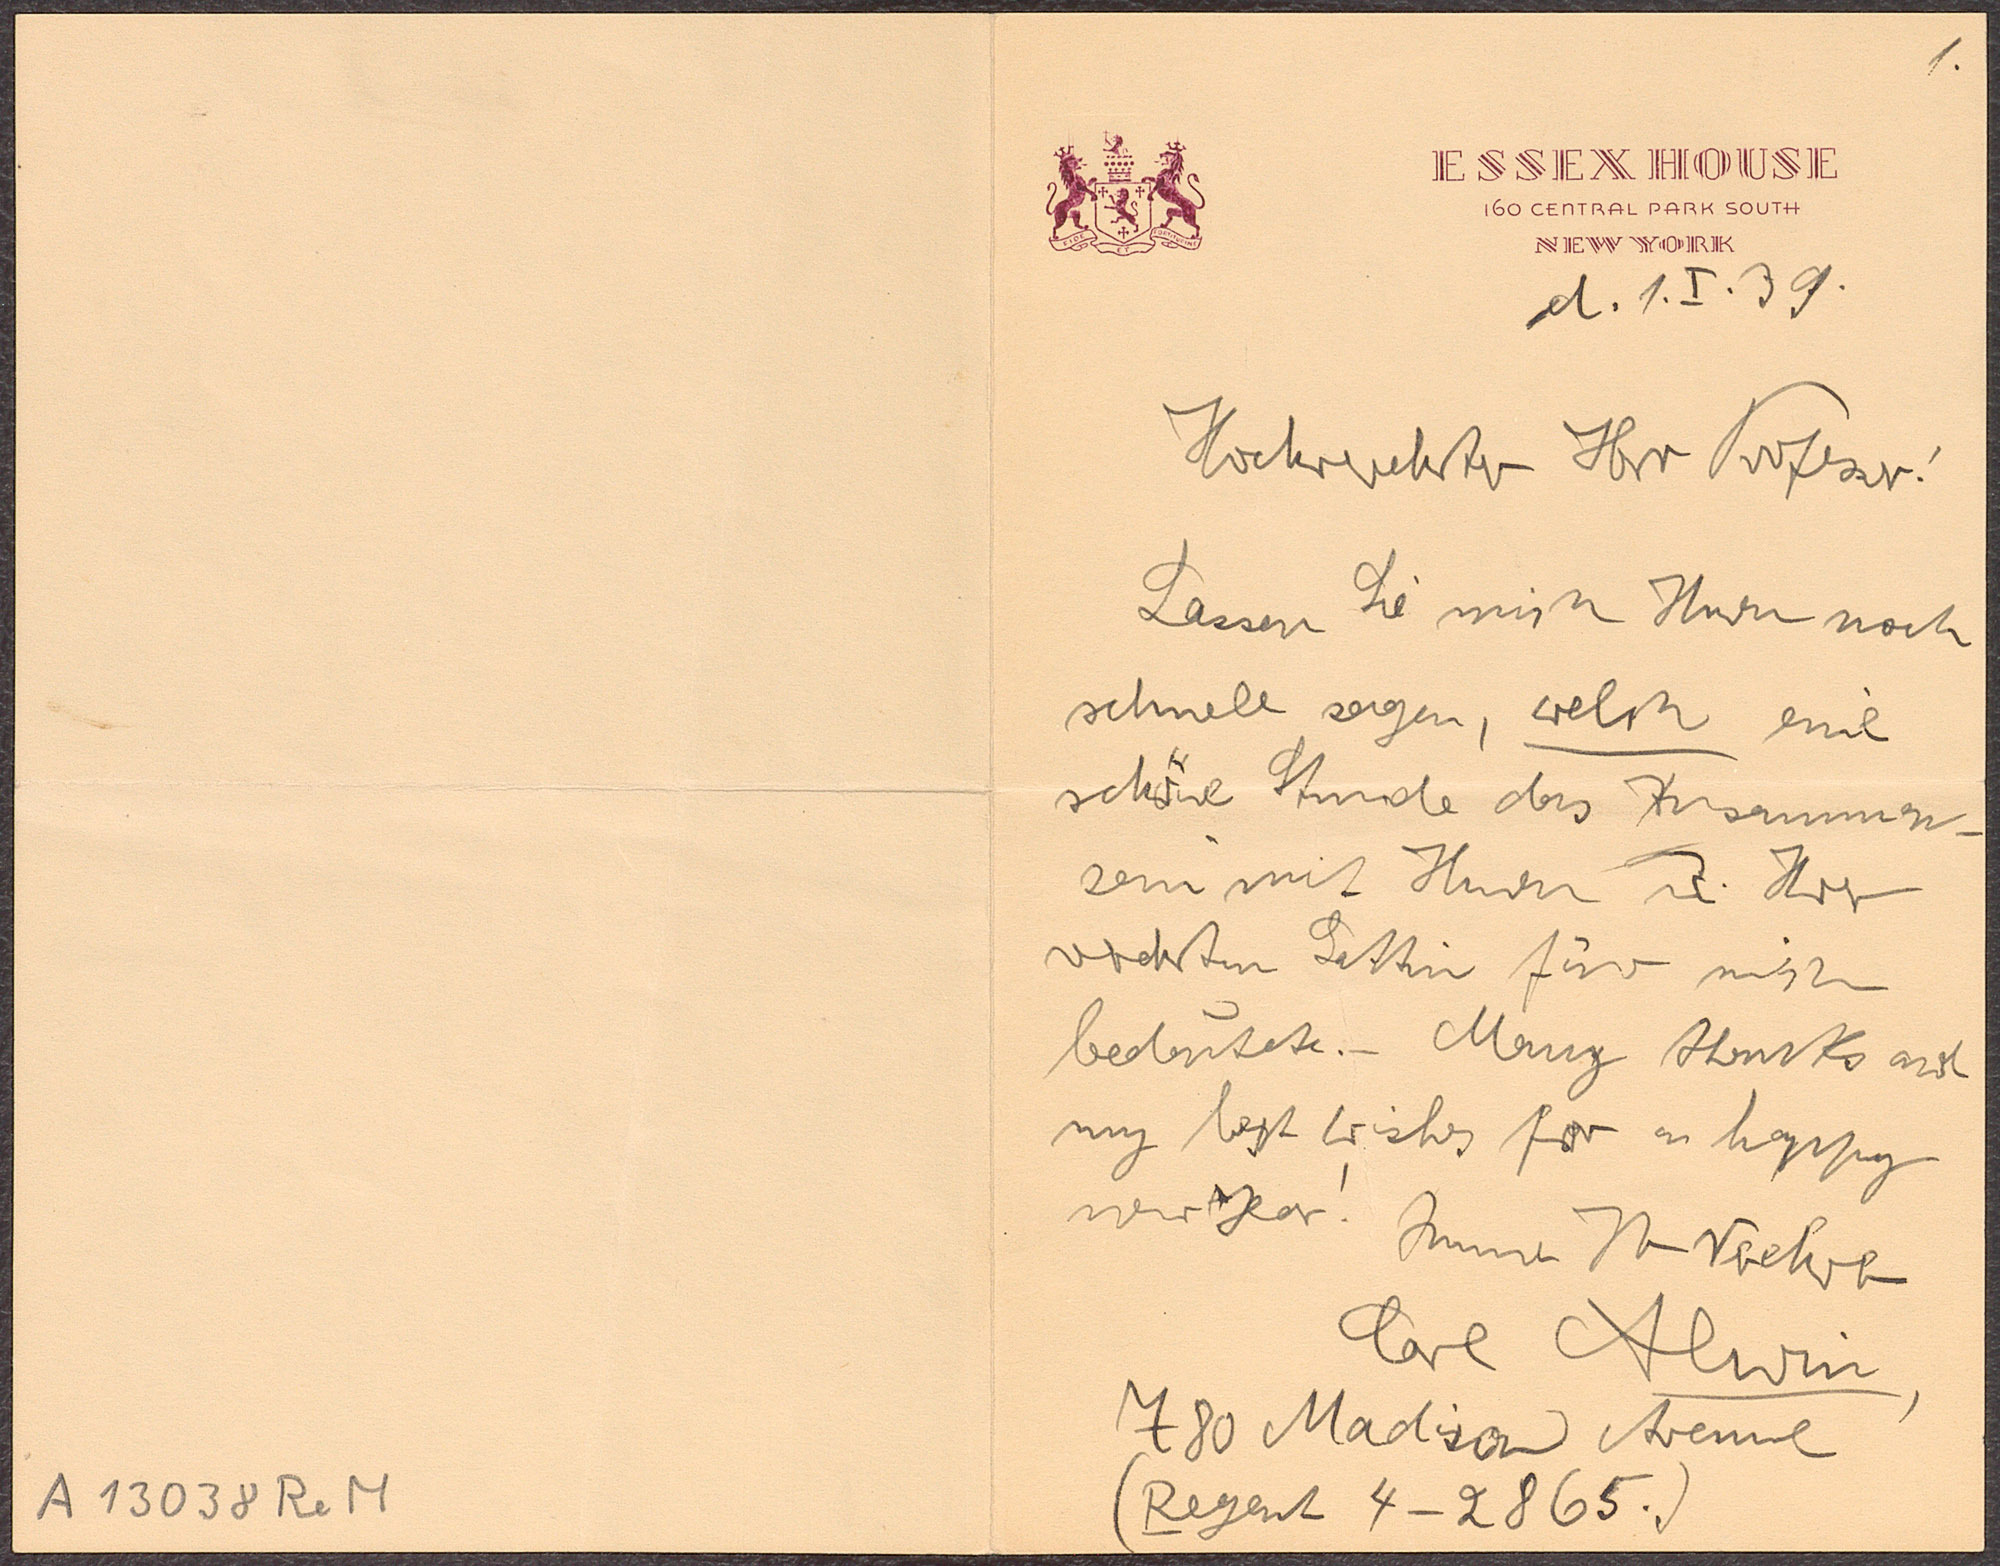 1.
ESSEX HOUSE
160 CENTRAL PARK SOUTH
NEW YORK
FIDE ET FORTITUDINE
d. 1.I.39.
Hochverehrter Herr Professor!
Lassen Sie mich Ihnen noch
schnell sagen, welch eine
schöne Stunde das Zusammen-
sein mit Ihnen u. Ihrer
verehrten Gattin für mich
bedeutete. – Many thanks and
my best wishes for a happy
new Year! Immer Ihr Verehrer
Carl Alwin,
780 Madison Avenue
(Regent 4-2865.)
A 13038 Re M